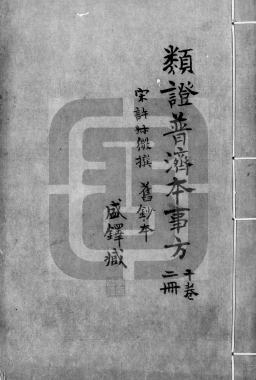 類證普濟本事方
十卷
二冊
宋許叔微撰 舊鈔本
盛鐸藏